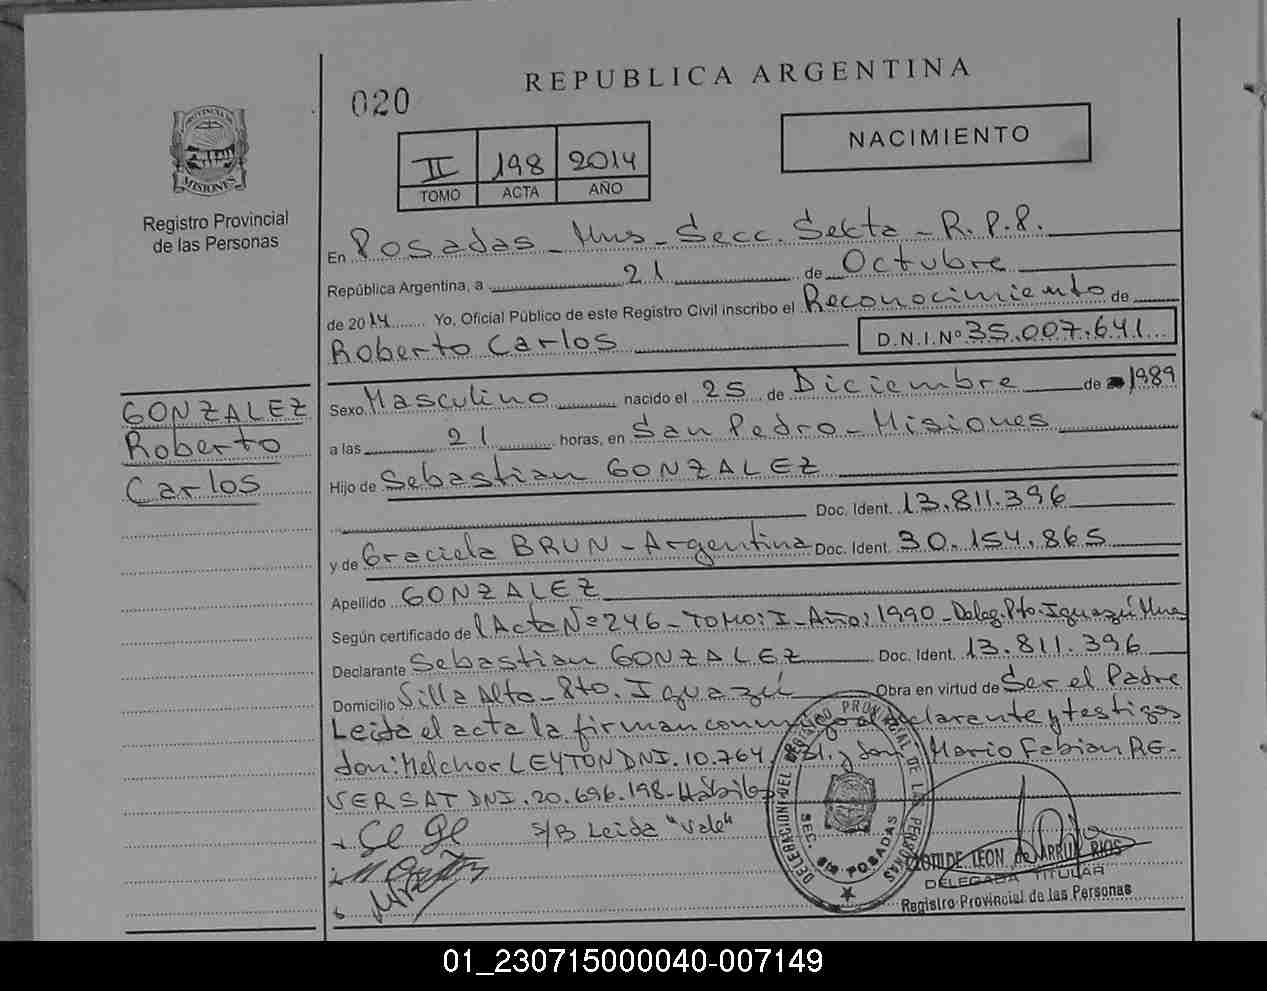 REPUBLICA ARGENTINA
020
PROVINCIA DE
MISIONES
Registro Provincial
de las Personas
II 198 2014
TOMO ACTA AÑO
NACIMIENTO
En Posadas - Mns - Secc. Sexta - R.P.P.
República Argentina, a 21 de Octubre
de 2014 Yo, Oficial Público de este Registro Civil inscribo el Reconocimiento de
Roberto Carlos D.N.I.Nº 35.007.641
GONZALEZ
Roberto
Carlos
Sexo Masculino nacido el 25 de Diciembre de 1989
a las 21 horas, en San Pedro - Misiones
Hijo de Sebastian GONZALEZ
Doc. Ident. 13.811.396
y de Graciela BRUN - Argentina Doc. Ident. 30.154.865
Apellido GONZALEZ
Según certificado de l Acta Nº 246 - TOMO: I - Año: 1990 - Deleg. Pto. Iguazú Mns
Declarante Sebastian GONZALEZ Doc. Ident. 13.811.396
Domicilio Villa Alta - Pto. Iguazú Obra en virtud de Ser el Padre
Leida el acta la firman conmigo el declarante y testigos
don: Melchor LEYTON DNI. 10.764. y don Mario Fabian RE-
VERSAT DNI. 20.696.198 - Hábiles
S/B Leida "Vale"
DELEGACION DEL REGISTRO PROVINCIAL DE LAS PERSONAS
SEC. 6ta POSADAS
LEON de ARRUA RIOS
DELEGADA TITULAR
Registro Provincial de las Personas
01_230715000040-007149